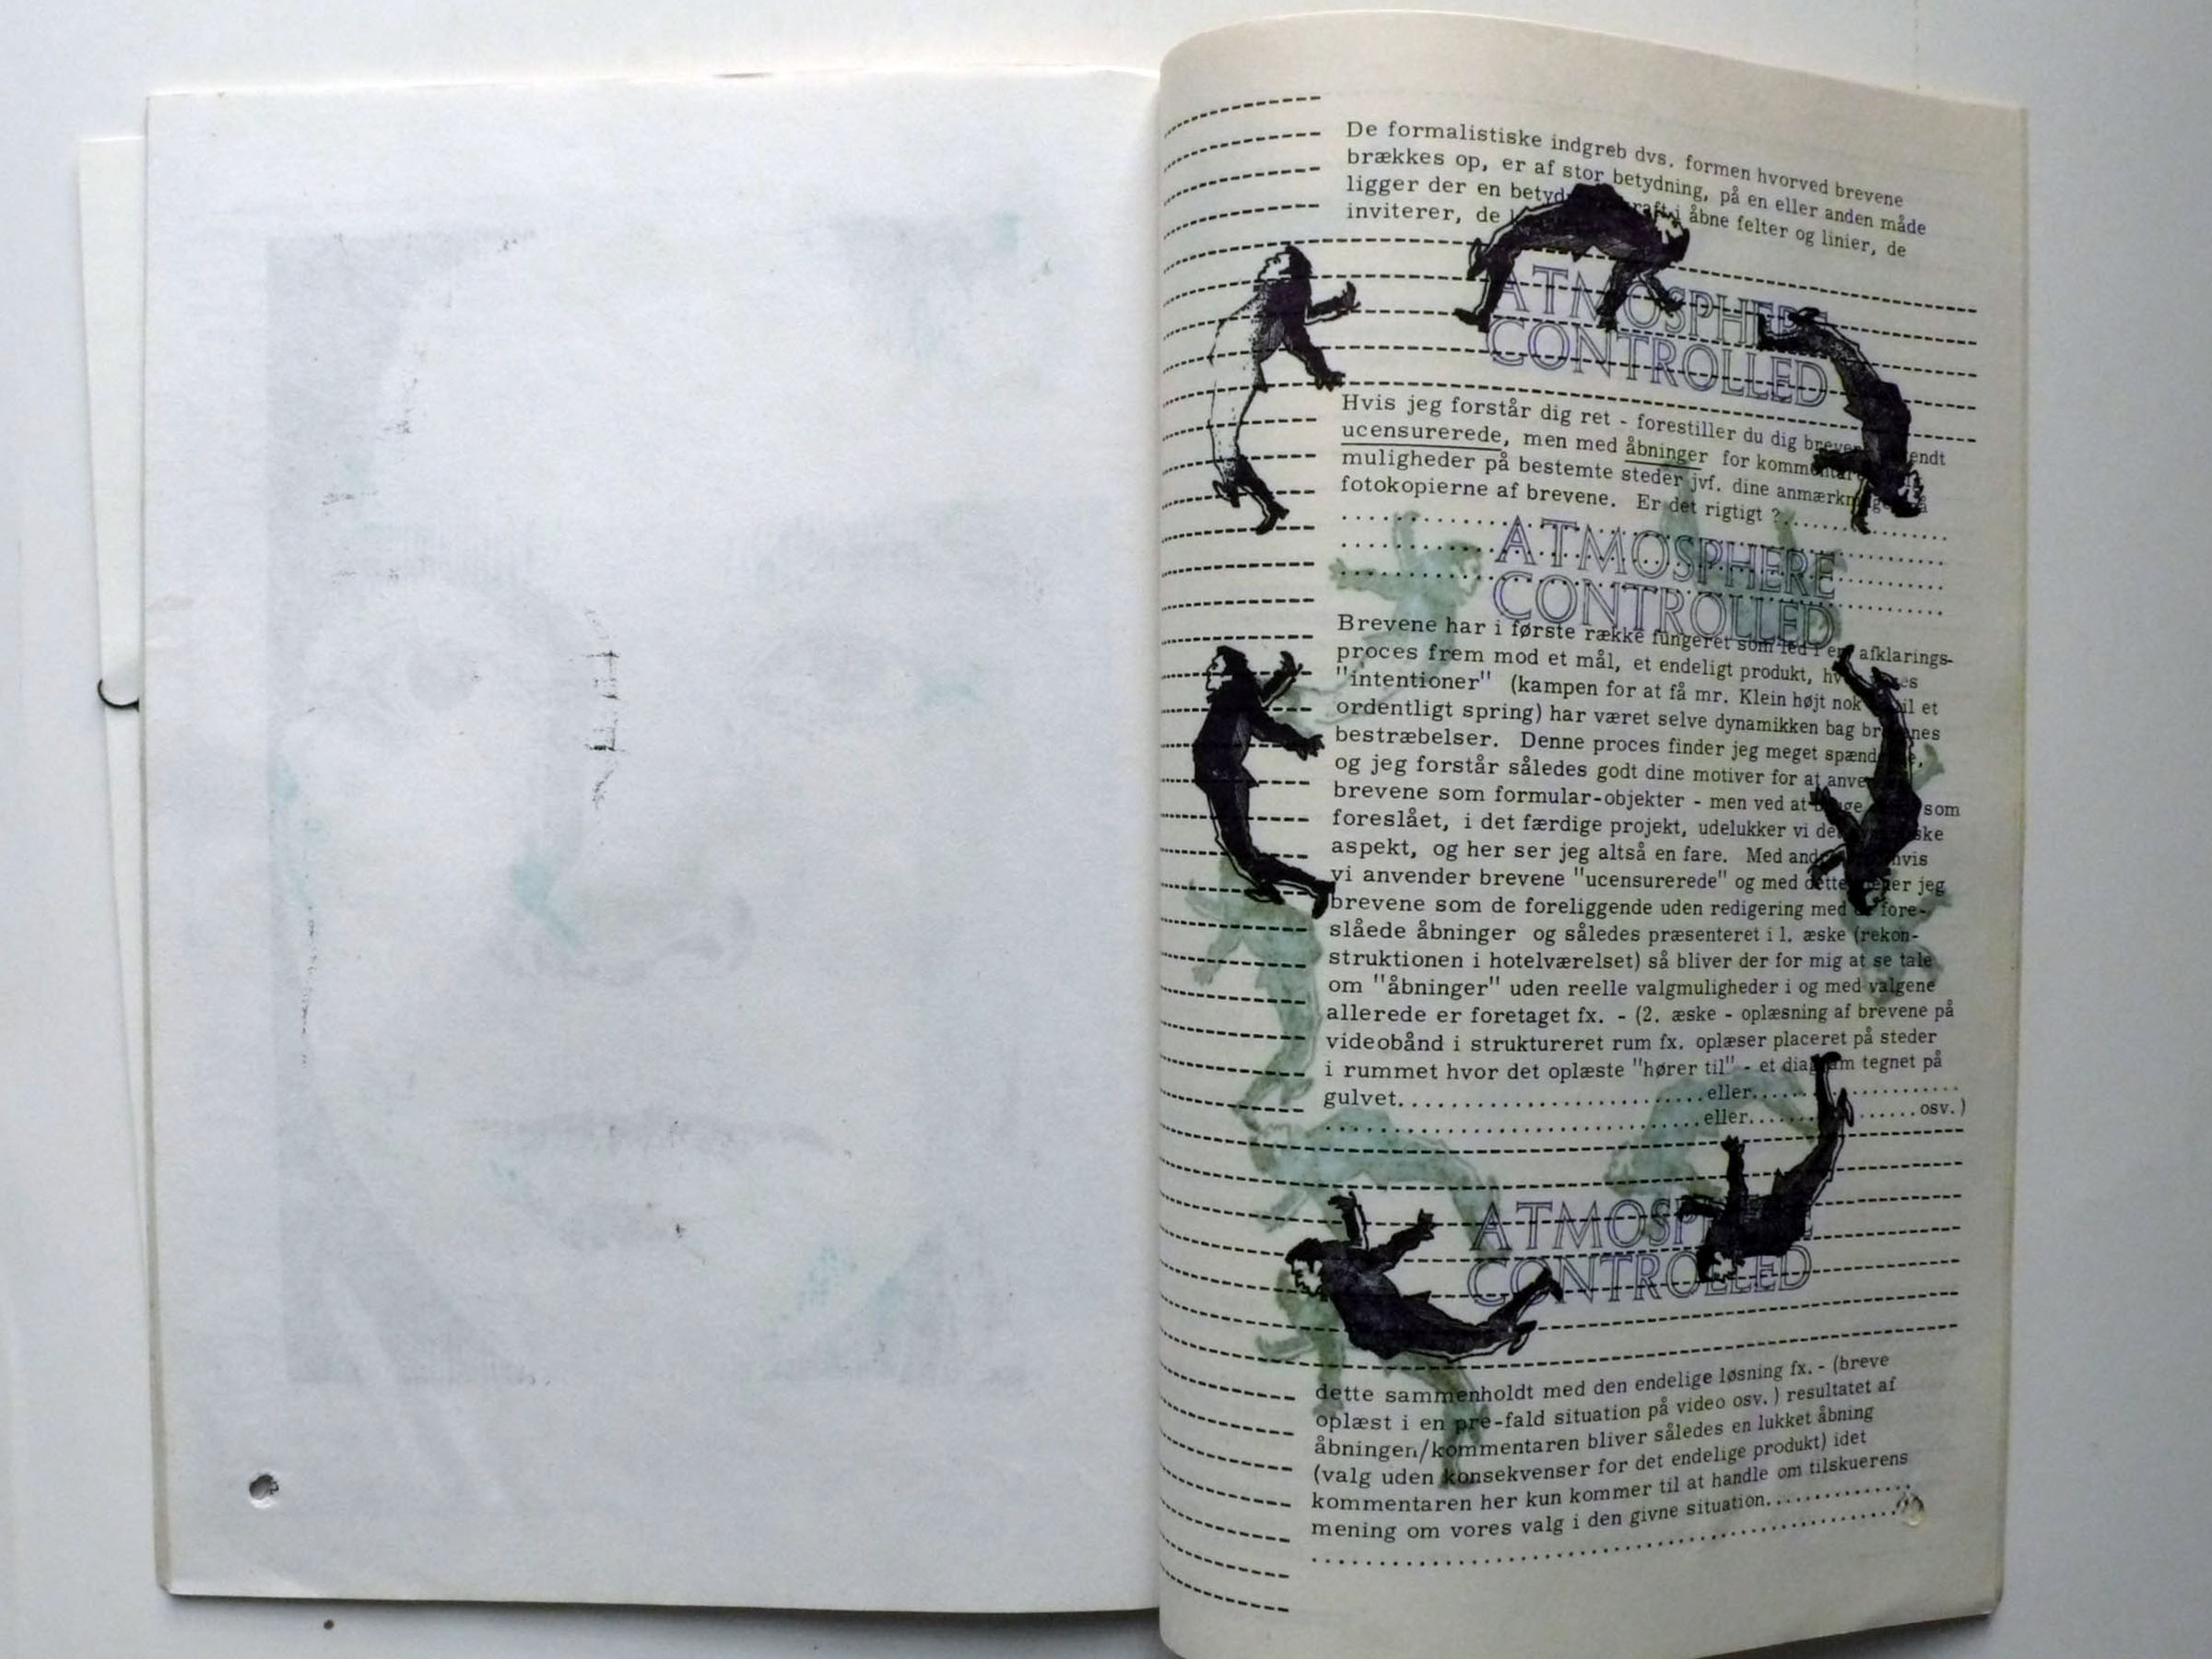 De formalistiske indgreb dvs. formen hvorved brevene
brækkes op, er af stor betydning, på en eller anden måde
ligger der en i åbne felter og linier, de
inviterer, de
ATMOSPHERE
CONTROLLED
Hvis jeg forstår dig ret - forestiller du dig
ucensurerede, men med åbninger for
muligheder på bestemte steder jvf. dine
fotokopierne af brevene. Er det rigtigt ?..............
ATMOSPHERE
CONTROLLED
Brevene har i første række fungeret som led i en afklarings-
proces frem mod et mål, et endeligt produkt,
"intentioner" (kampen for at få mr. Klein højt nok til et
ordentligt spring) har været selve dynamikken bag
bestræbelser. Denne proces finder jeg meget
og jeg forstår således godt dine motiver for at
brevene som formular-objekter - men ved at som
foreslået, i det færdige projekt, udelukker vi
aspekt, og her ser jeg altså en fare. Med hvis
vi anvender brevene "ucensurerede" og med dette jeg
brevene som de foreliggende uden redigering med fore-
slåede åbninger og således præsenteret i 1. æske (rekon-
struktionen i hotelværelset) så bliver der for mig at se tale
om "åbninger" uden reelle valgmuligheder i og med valgene
allerede er foretaget fx. - (2. æske - oplæsning af brevene på
videobånd i struktureret rum fx. oplæser placeret på steder
i rummet hvor det oplæste "hører til" - et diagram tegnet på
gulvet..............................eller....................
....................................eller..............osv.)
ATMOSPHERE
CONTROLLED
dette sammenholdt med den endelige løsning fx. - (breve
oplæst i en pre-fald situation på video osv.) resultatet af
åbningen/kommentaren bliver således en lukket åbning
(valg uden konsekvenser for det endelige produkt) idet
kommentaren her kun kommer til at handle om tilskuerens
mening om vores valg i den givne situation..............